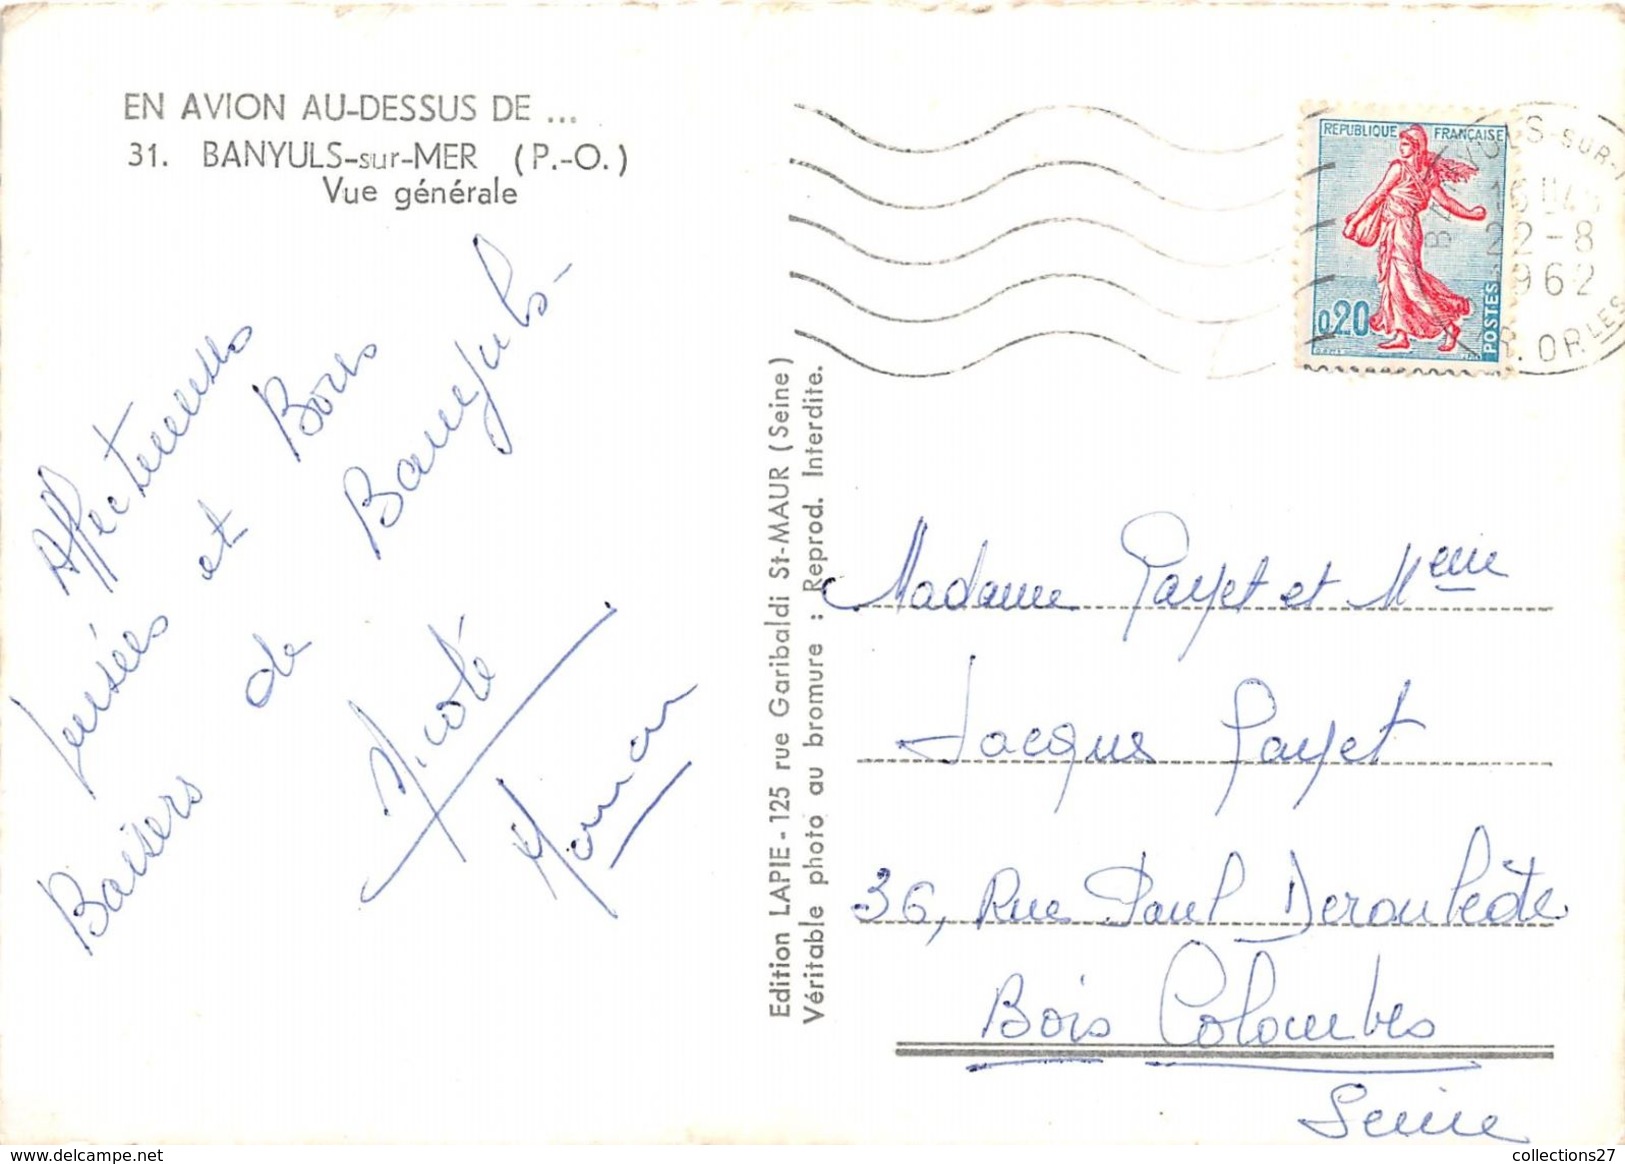 EN AVION AU-DESSUS DE ...
31. BANYULS-sur-MER (P.-O.)
Vue générale
Affectueuses
pensées et Bons
Baisers de Banyuls-
Nicole
Maman
Edition LAPIE - 125 rue Garibaldi St-MAUR (Seine)
Véritable photo au bromure : Reprod. Interdite.
REPUBLIQUE FRANÇAISE
0,20
POSTES
22-8
1962
Madame Payet et Mme
Jacques Payet
36, Rue Paul Déroulède
Bois Colombes
Seine
collections27